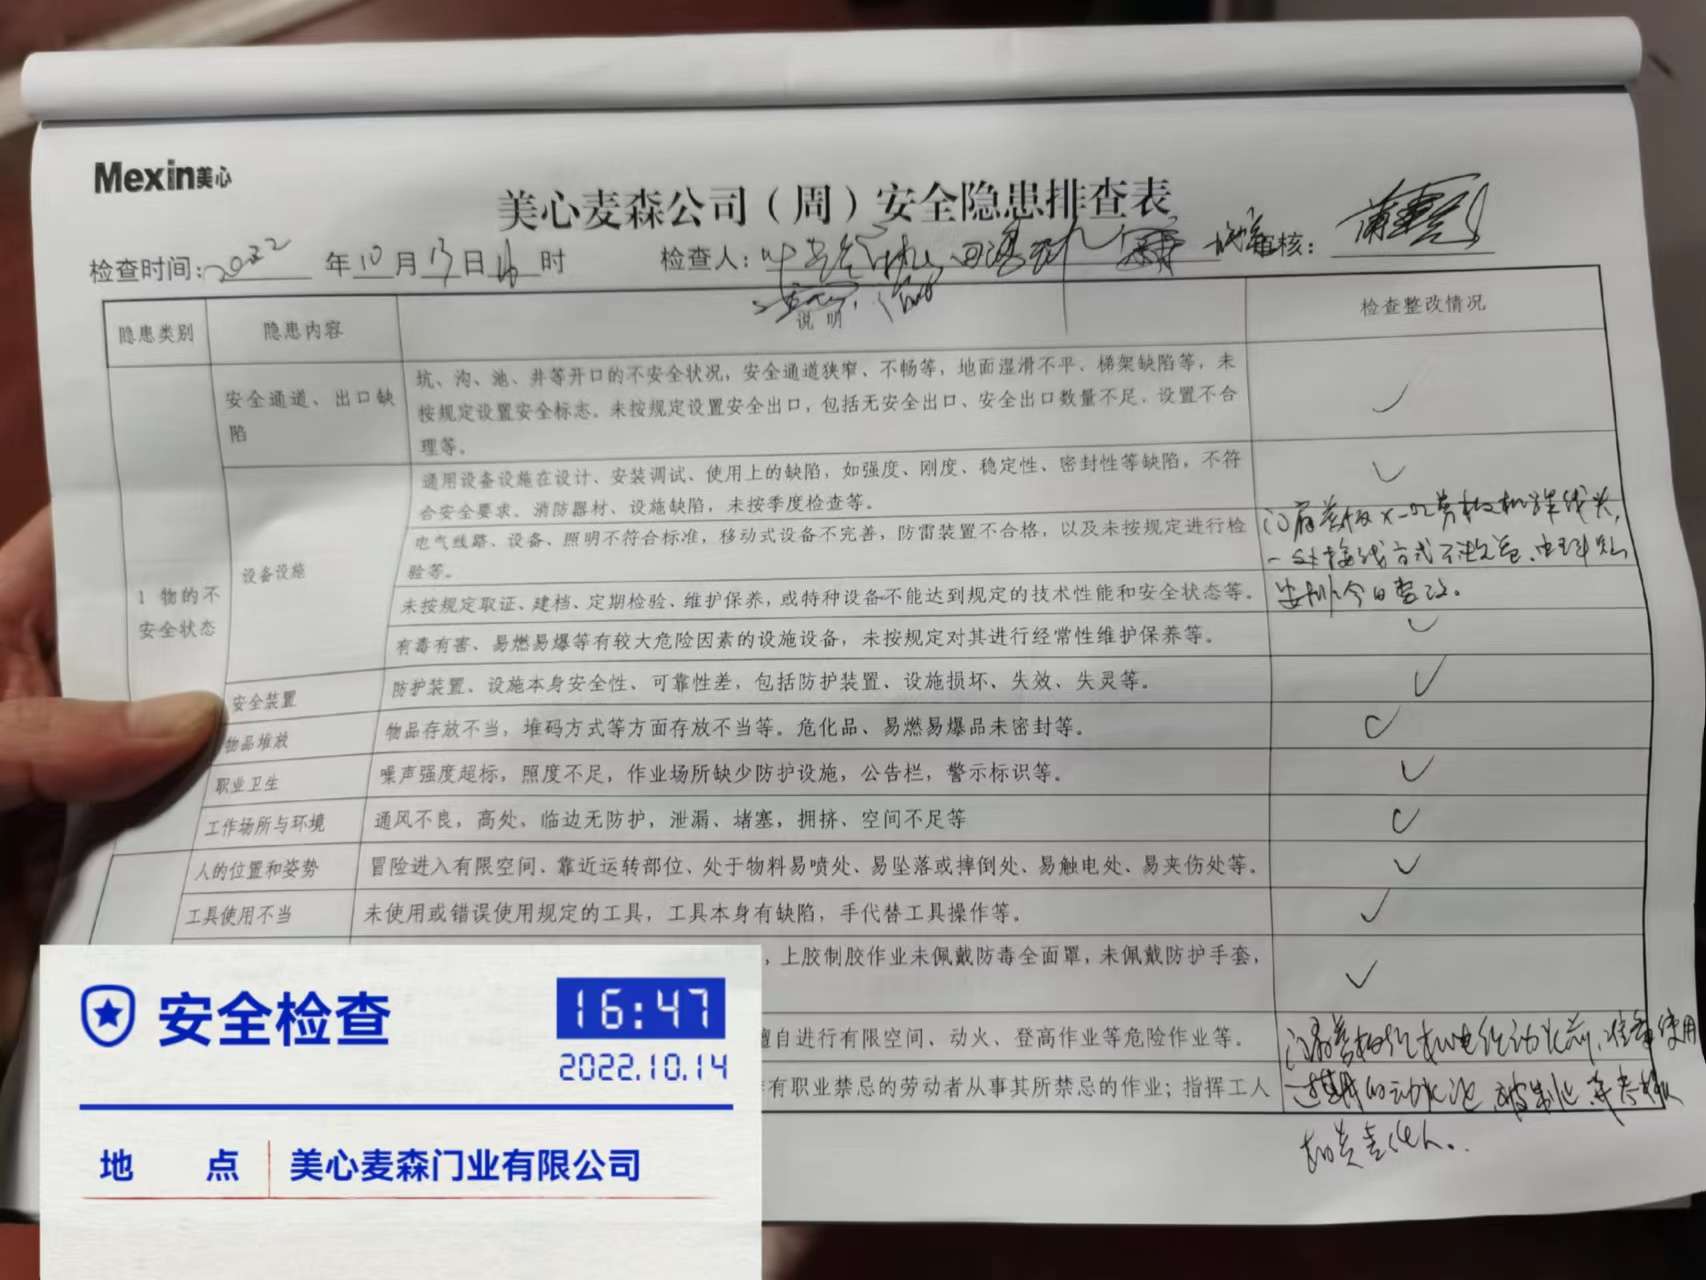 Mexin美心
美心麦森公司（周）安全隐患排查表
检查时间:2022年10月13日16时 检查人: 审核:
隐患类别 隐患内容 说明 检查整改情况
1 物的不安全状态
安全通道、出口缺陷
坑、沟、池、井等开口的不安全状况，安全通道狭窄、不畅等，地面湿滑不平、梯架缺陷等，未
按规定设置安全标志。未按规定设置安全出口，包括无安全出口、安全出口数量不足，设置不合
理等。
✓
设备设施
通用设备设施在设计、安装调试、使用上的缺陷，如强度、刚度、稳定性、密封性等缺陷，不符
合安全要求。消防器材、设施缺陷，未按季度检查等。
✓
电气线路、设备、照明不符合标准，移动式设备不完善，防雷装置不合格，以及未按规定进行检
验等。
未按规定取证、建档、定期检验、维护保养，或特种设备不能达到规定的技术性能和安全状态等。
今日整改。
有毒有害、易燃易爆等有较大危险因素的设施设备，未按规定对其进行经常性维护保养等。
✓
安全装置 防护装置、设施本身安全性、可靠性差，包括防护装置、设施损坏、失效、失灵等。 ✓
物品堆放 物品存放不当，堆码方式等方面存放不当等。危化品、易燃易爆品未密封等。 ✓
职业卫生 噪声强度超标，照度不足，作业场所缺少防护设施，公告栏，警示标识等。 ✓
工作场所与环境 通风不良，高处、临边无防护，泄漏、堵塞，拥挤、空间不足等 ✓
人的位置和姿势 冒险进入有限空间、靠近运转部位、处于物料易喷处、易坠落或摔倒处、易触电处、易夹伤处等。 ✓
工具使用不当 未使用或错误使用规定的工具，工具本身有缺陷，手代替工具操作等。 ✓
，上胶制胶作业未佩戴防毒全面罩，未佩戴防护手套， ✓
擅自进行有限空间、动火、登高作业等危险作业等。
有职业禁忌的劳动者从事其所禁忌的作业；指挥工人
安全检查
16:47
2022.10.14
地 点 美心麦森门业有限公司